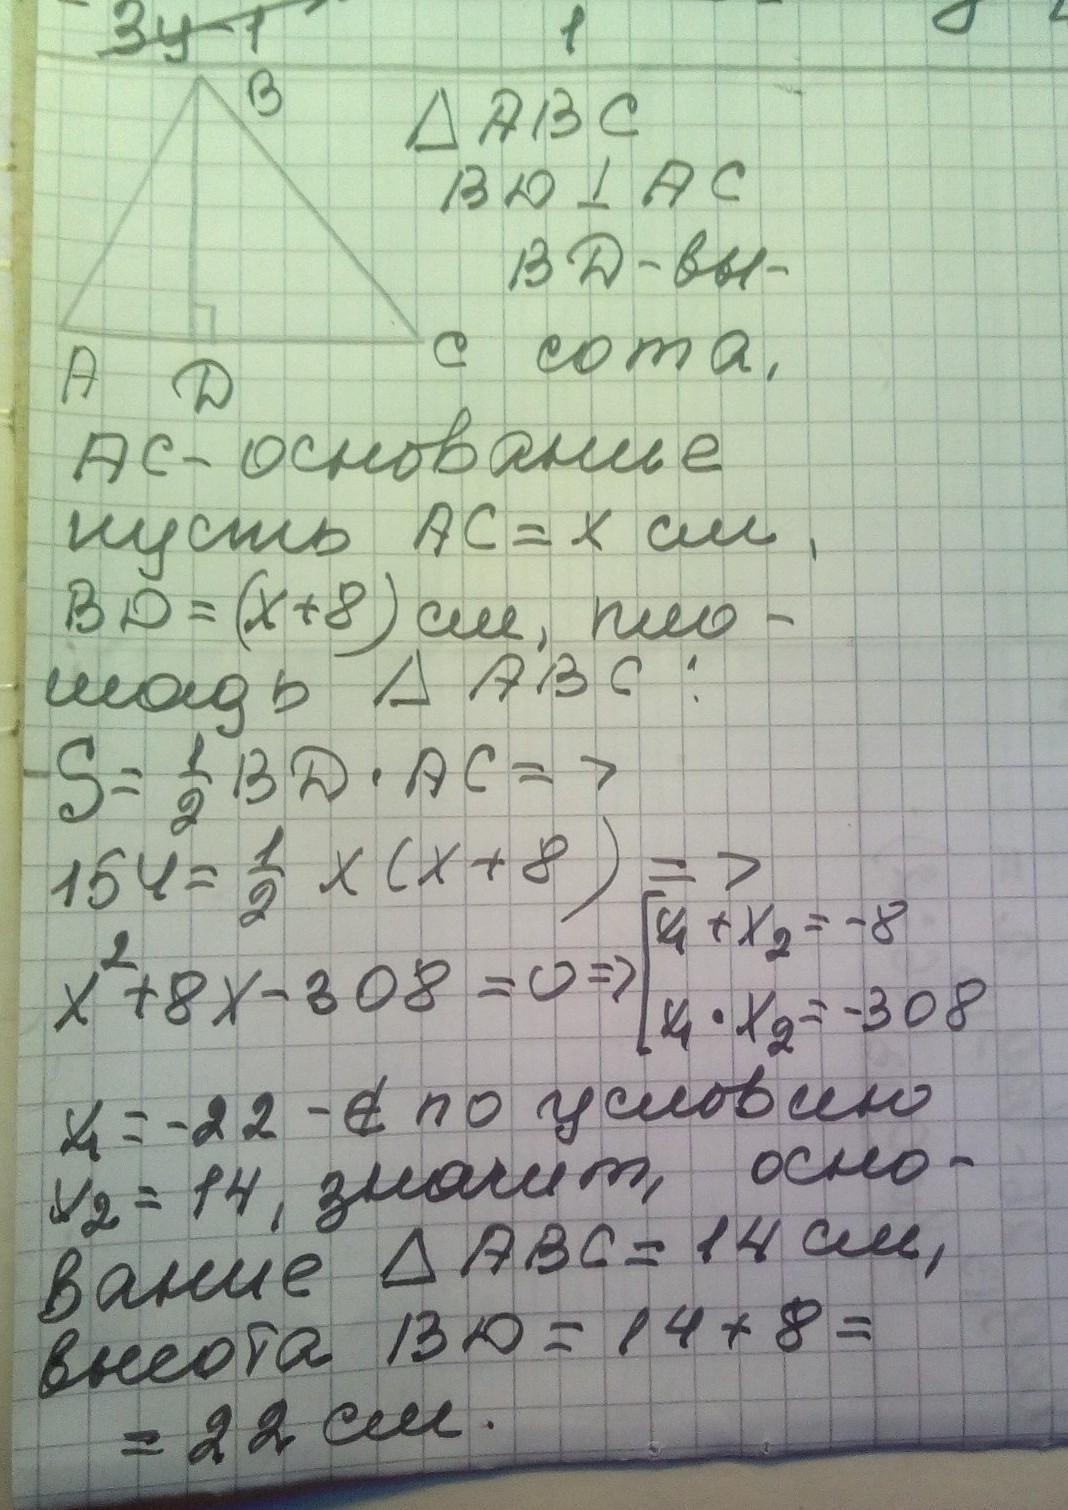 3y-1 1
B
△ABC
BD⊥AC
BD-вы-
A D C сота,
AC-основание
пусть AC=x см,
BD=(x+8) см, пло-
щадь △ABC:
S=1/2 BD·AC=>
154=1/2 x(x+8)=>
x²+8x-308=0=>[x₁+x₂=-8
x₁·x₂=-308
x₁=-22-∉ по условию
x₂=14, значит, осно-
вание △ABC=14 см,
высота BD=14+8=
=22 см.